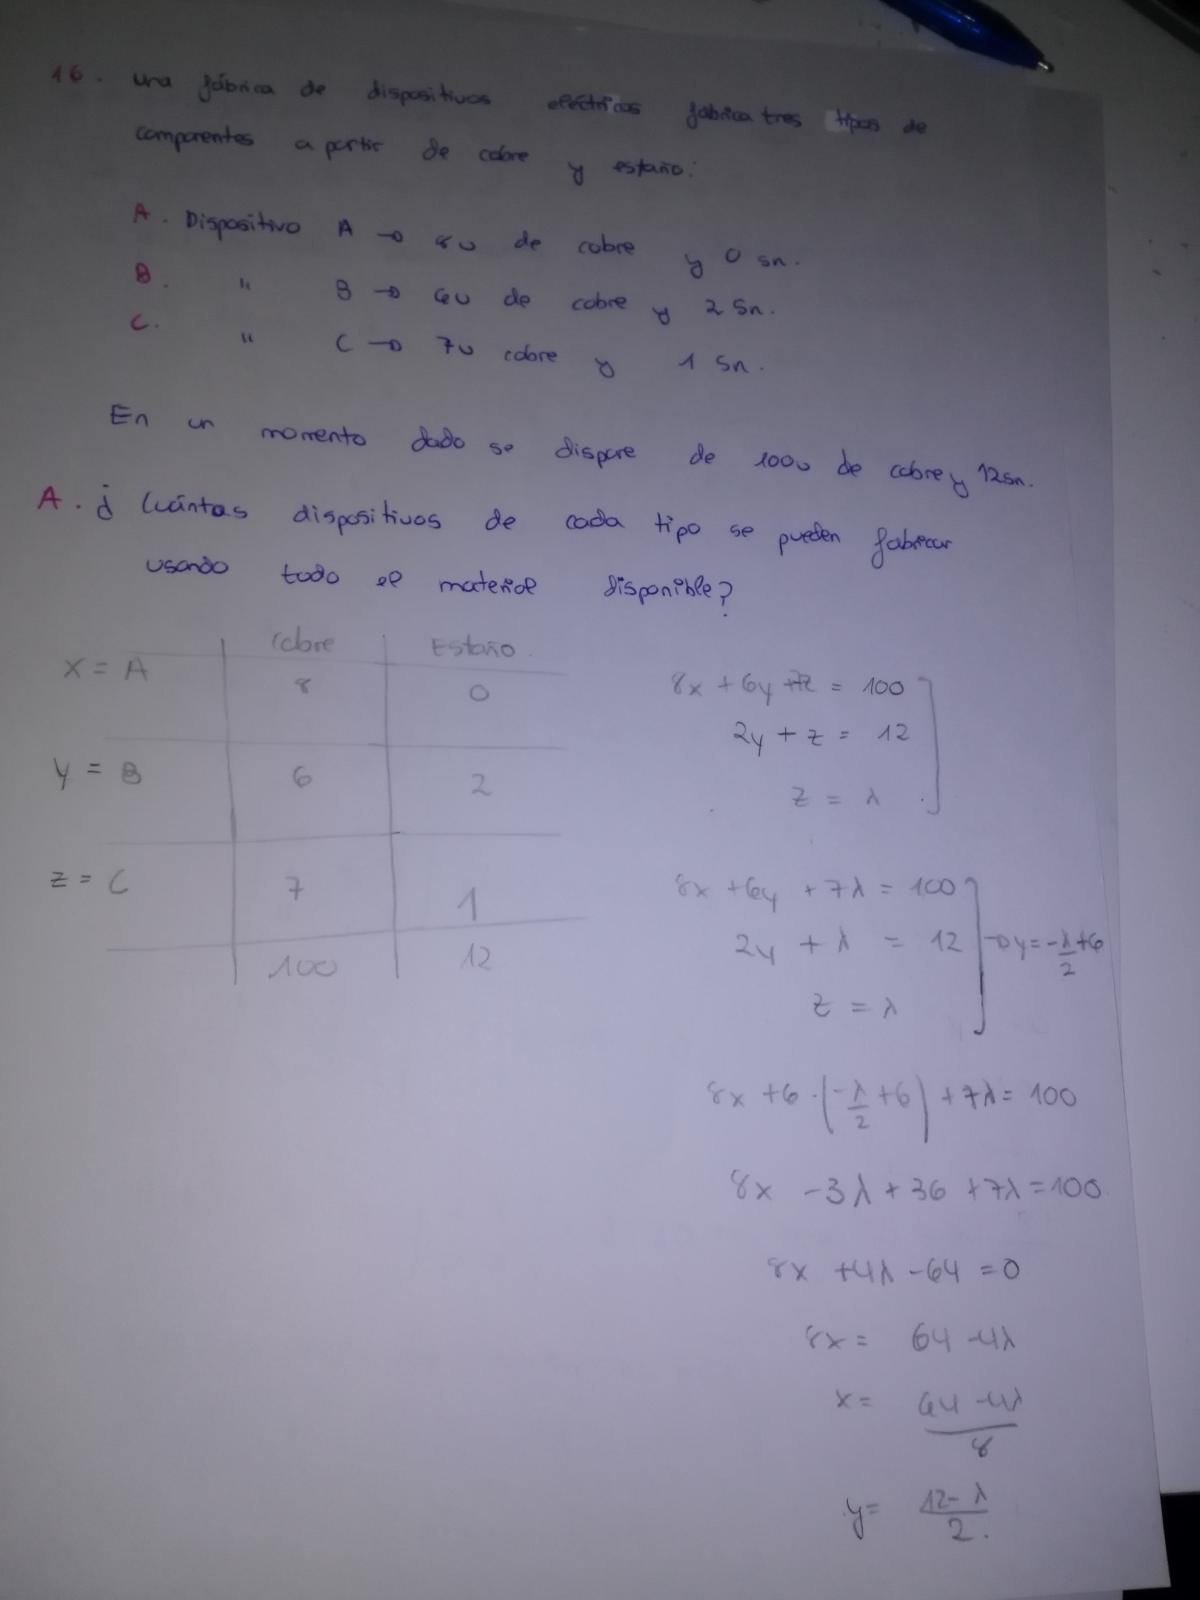 16. Una fábrica de dispositivos eléctricos fabrica tres tipos de
componentes a partir de cobre y estaño:
A. Dispositivo A → 8u de cobre y 0 sn.
B. " B → 6u de cobre y 2 Sn.
C. " C → 7u cobre y 1 Sn.
En un momento dado se dispone de 100u de cobre y 12sn.
A. ¿Cuántas dispositivos de cada tipo se pueden fabricar
usando todo el material disponible?
Cobre Estaño
x = A 8 0
y = B 6 2
z = C 7 1
100 12
8x + 6y + 7z = 100
2y + z = 12
z = λ
8x + 6y + 7λ = 100
2y + λ = 12 → y = -λ/2 + 6
z = λ
8x + 6 · (-λ/2 + 6) + 7λ = 100
8x - 3λ + 36 + 7λ = 100
8x + 4λ - 64 = 0
8x = 64 - 4λ
x = (64 - 4λ)/8
y = (12 - λ)/2.